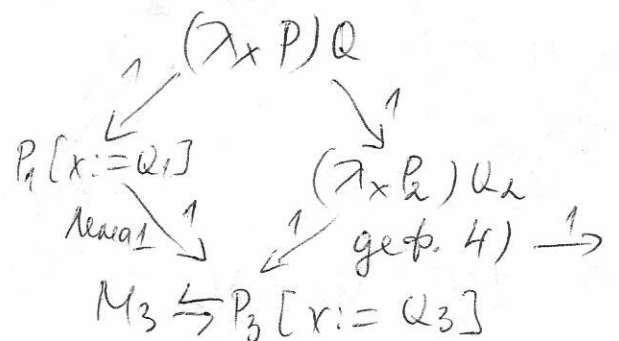 (λx P) Q
1 1
P₁[x:=Q₁] (λx P₂) Q₂
лема 1 1 1 деф. 4) →¹
M₃ ⇆ P₃[x:=Q₃]